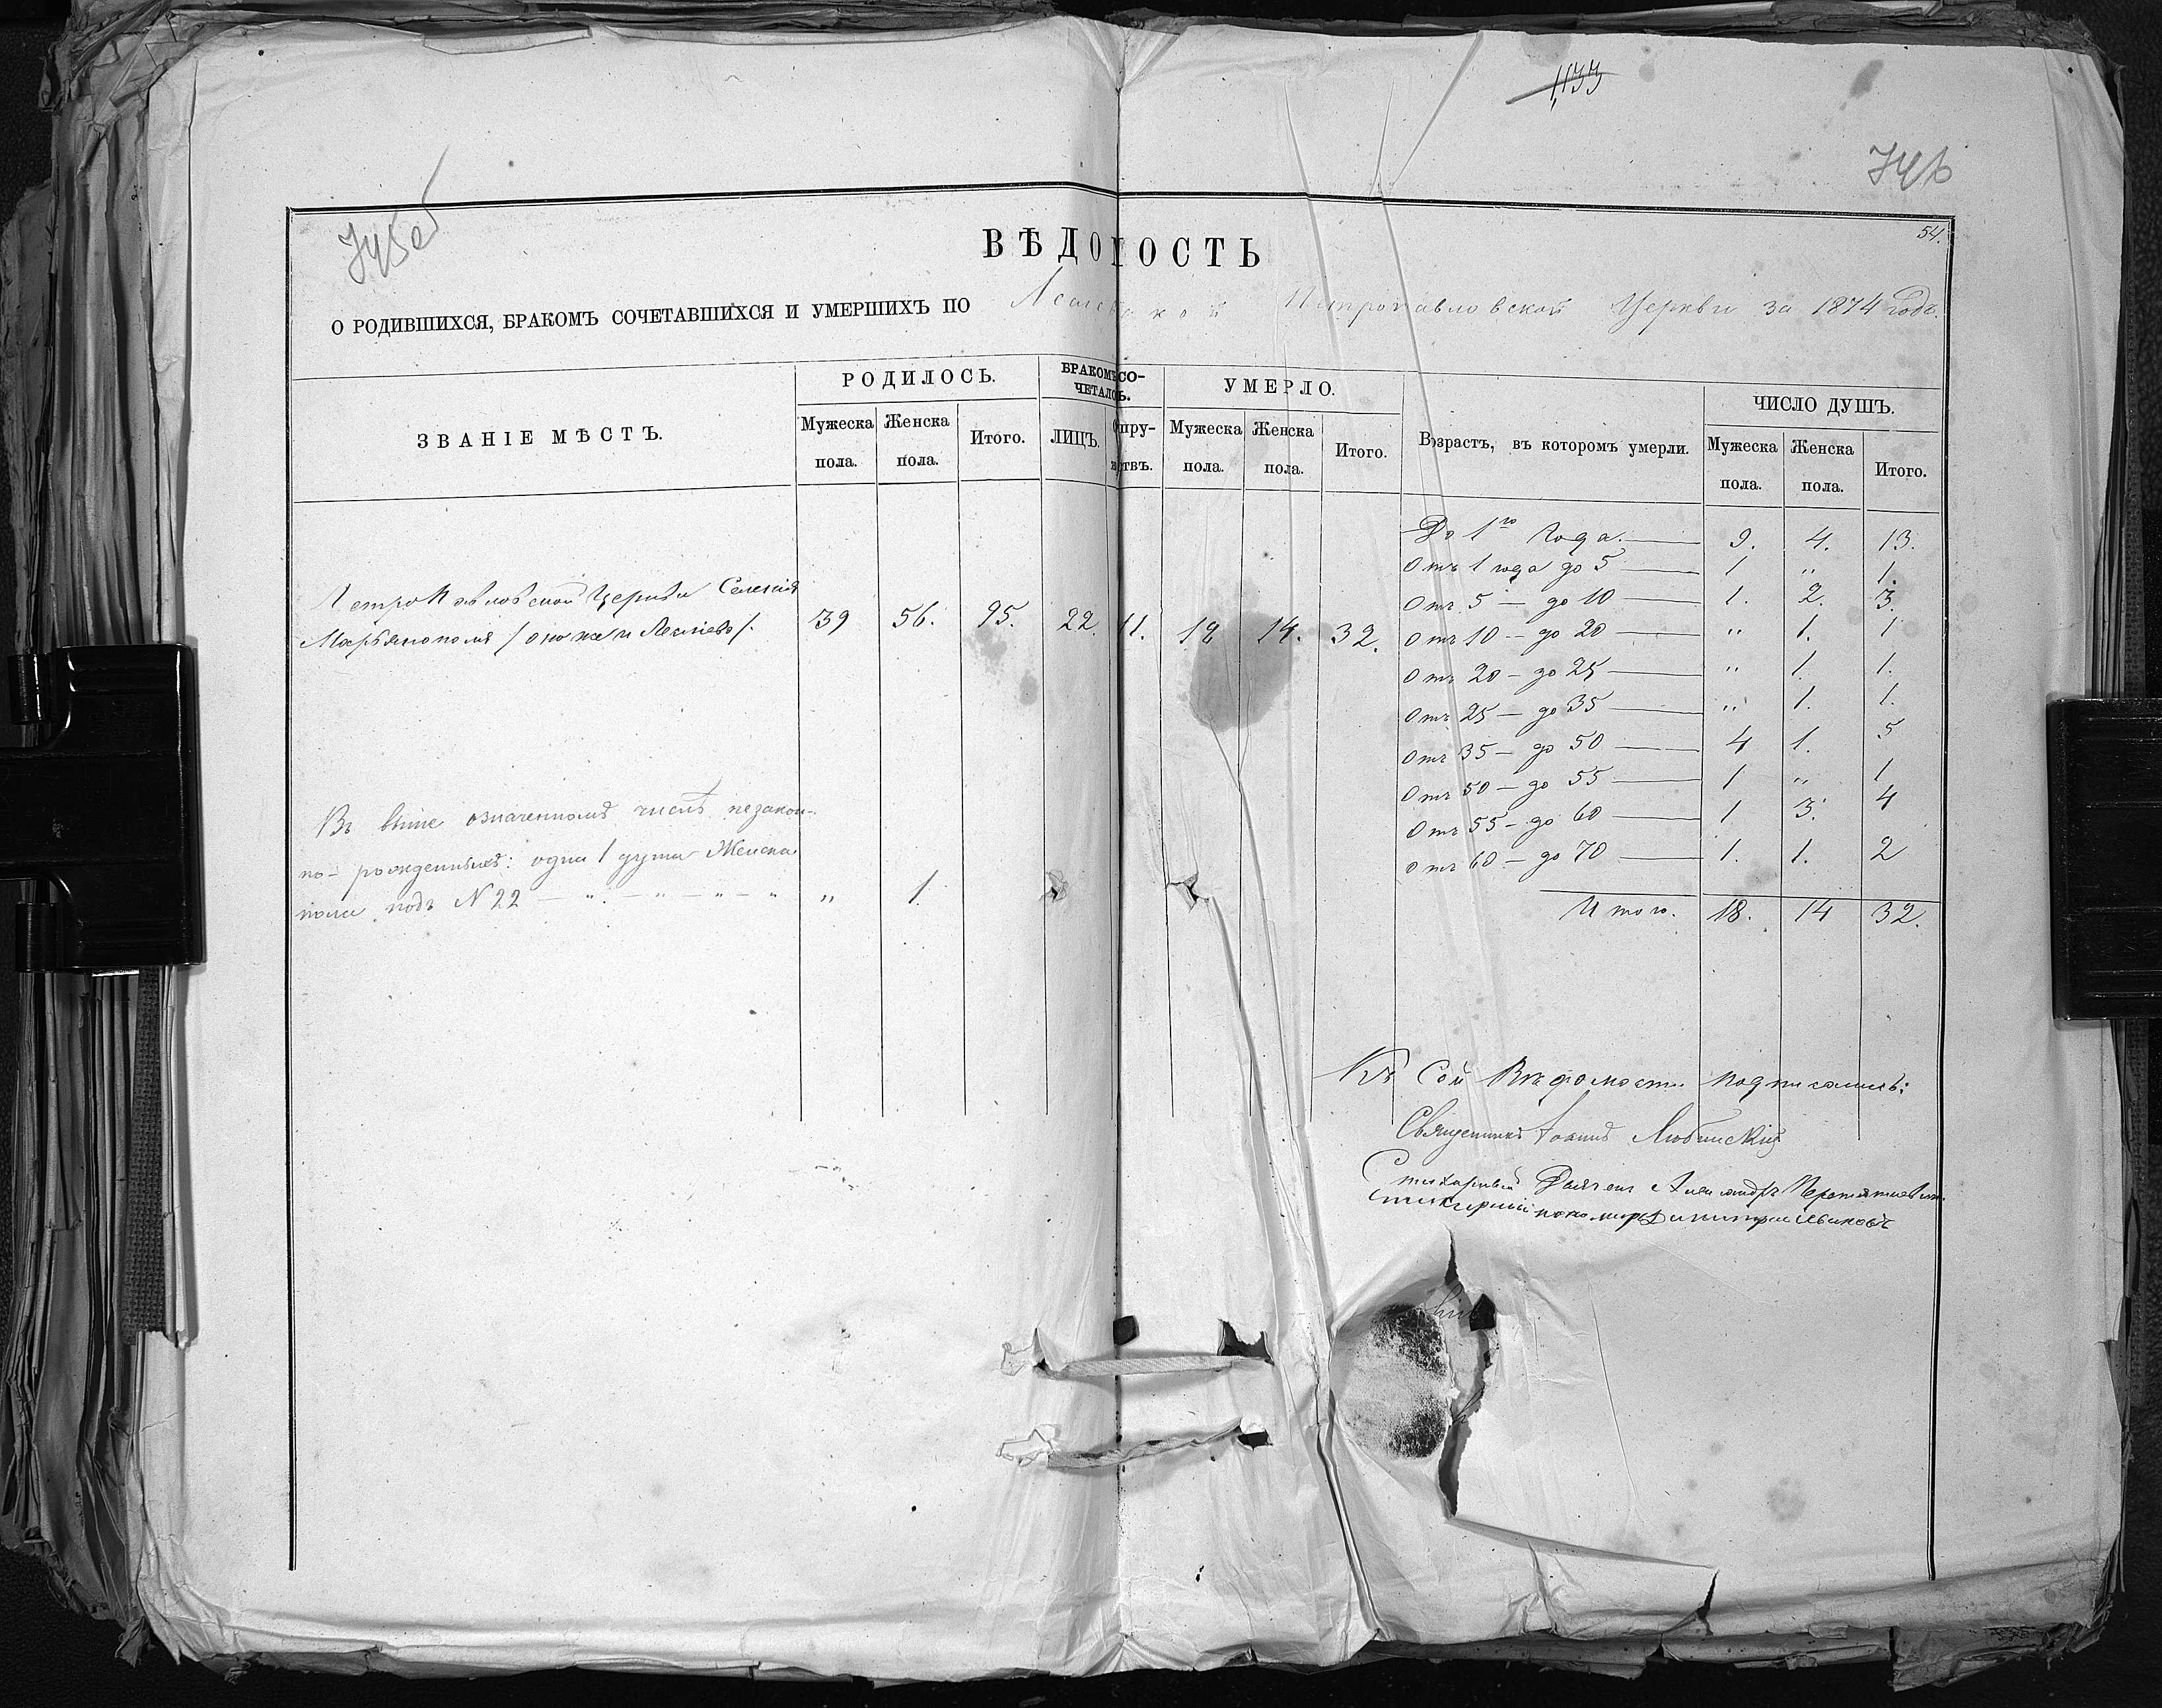 1133
746
745об
54.
ВѢДОМОСТЬ
О РОДИВШИХСЯ, БРАКОМЪ СОЧЕТАВШИХСЯ И УМЕРШИХЪ ПО Петропавловской Церкви за 1874 годъ.
ЗВАНІЕ МѢСТЪ.
РОДИЛОСЬ.
Мужеска пола.
Женска пола.
Итого.
БРАКОМЪ СО-
ЧЕТАЛОСЬ.
ЛИЦЪ.
Супру-
жествъ.
УМЕРЛО.
Мужеска пола.
Женска пола.
Итого.
Возрастъ, въ которомъ умерли.
ЧИСЛО ДУШЪ.
Мужеска пола.
Женска пола.
Итого.
Петропавловской Церкви Селенія
Марьянополя / оно же и / . 39 56. 95. 22. 11. 18 14. 32.
Въ выше означенномъ числѣ незакон-
но-рожденныхъ: одна 1 душа Женска
пола подъ N 22 — „ — „ — „ — „ „ 1.
До 1го года. — 9. 4. 13.
Отъ 1 года до 5 — 1 „ 1.
Отъ 5 — до 10 — 1. 2. 3.
Отъ 10 — до 20 — „ 1. 1
Отъ 20 — до 25 — „ 1. 1.
Отъ 25 — до 35 — „ 1. 1.
Отъ 35 — до 50 — 4 1. 5
Отъ 50 — до 55 — 1 „ 1
Отъ 55 — до 60 — 1 3. 4
Отъ 60 — до 70 — 1. 1. 2
Итого. 18. 14 32.
Къ Сей Вѣдомости подписались:
Священникъ Іоаннъ Любинскій
Стихарный Дьячекъ Александръ
Стихарный пономарь Димитрій